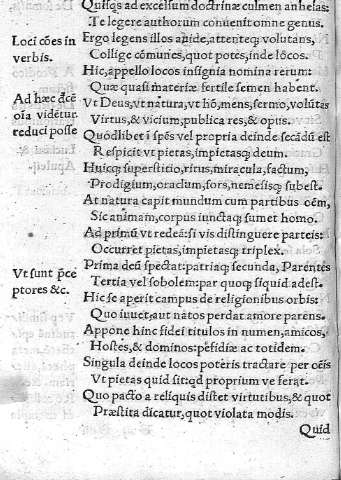 Quisq̃s ad excelsum doctrinæ culmen anhelas:
Te legere authorum convenit omne genus.
Ergo legens illos auide, attenteq; volutans,
Loci cões in
verbis.
Collige cõmunes, quot potes, inde lôcos.
Hic, appello locos insignia nomina rerum:
Quæ quasi materiæ fertile semen habent.
Ad hæc d̃cẽ
oĩa vidẽtur
reduci posse
Vt Deus, vt natura, vt hõ, mens, sermo, volũtas
Virtus, & vicium, publica res, & opus.
Quodlibet ĩ sp̃s vel propria deinde secãdũ est
Respicit vt pietas, impietasq; deum.
Huicq; superstitio, ritus, miracula, factum,
Prodigium, oraclum, fors, nemesisq; subest.
At natura capit mundum cum partibus oẽm,
Sic animam, corpus iunctaq; sumet homo.
Ad primũ vt redeã: si vis distinguere parteis:
Occurret pietas, impietasq; triplex.
Vt sunt p̃ce
ptores &c.
Prima deũ spectat: patriaq; secunda, Parentes
Tertia vel sobolem: par quoq; siquid adest.
Hic se aperit campus de religionibus orbis:
Quo iuuet, aut natos perdat amore parens.
Appone hinc fidei titulos in numen, amicos,
Hostes, & dominos: p̃fidiæ ac totidem.
Singula deinde locos poteris tractare per oẽis
Vt pietas quid sitq; proprium ve ferat.
Quo pacto a reliquis distet virtutibus, & quot
Præstita dicatur, quot violata modis.
Quid